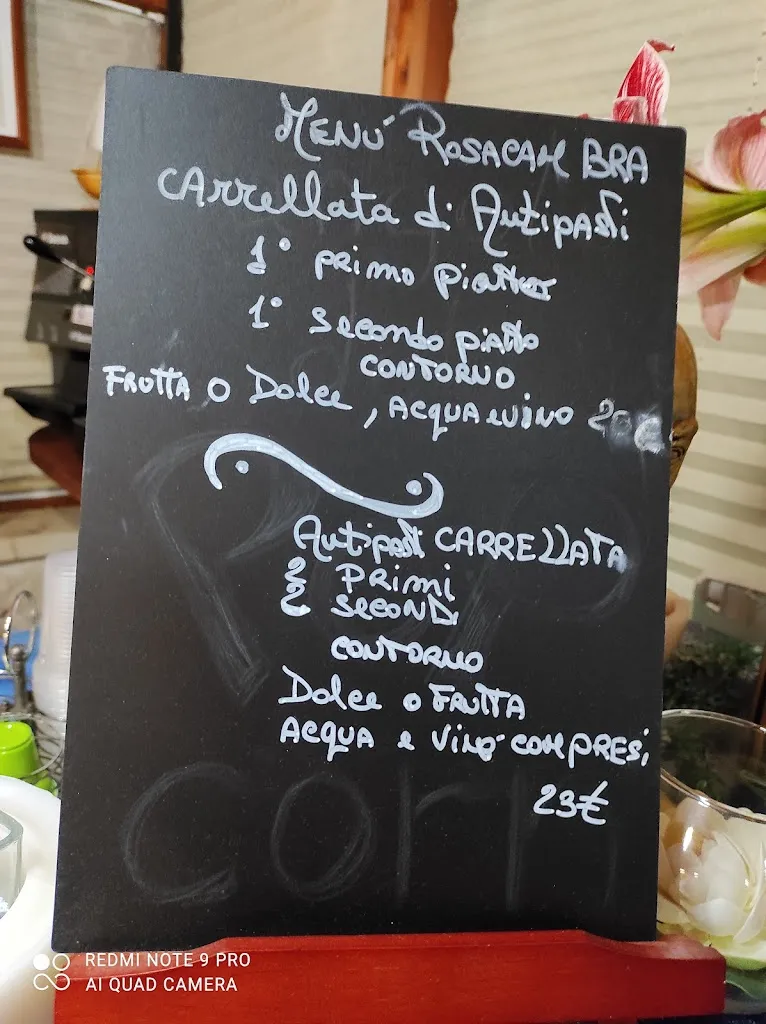 MENÙ ROSACAM BRA
CARRELLATA di Antipasti
1° primo piatto
1° secondo piatto
CONTORNO
FRUTTA O Dolce, ACQUA e VINO 20€
Antipasti CARRELLATA
2 PRIMI
2 SECONDI
CONTORNO
Dolce o FRUTTA
ACQUA e VINO COMPRESI
23€
Pop
corn
REDMI NOTE 9 PRO
AI QUAD CAMERA